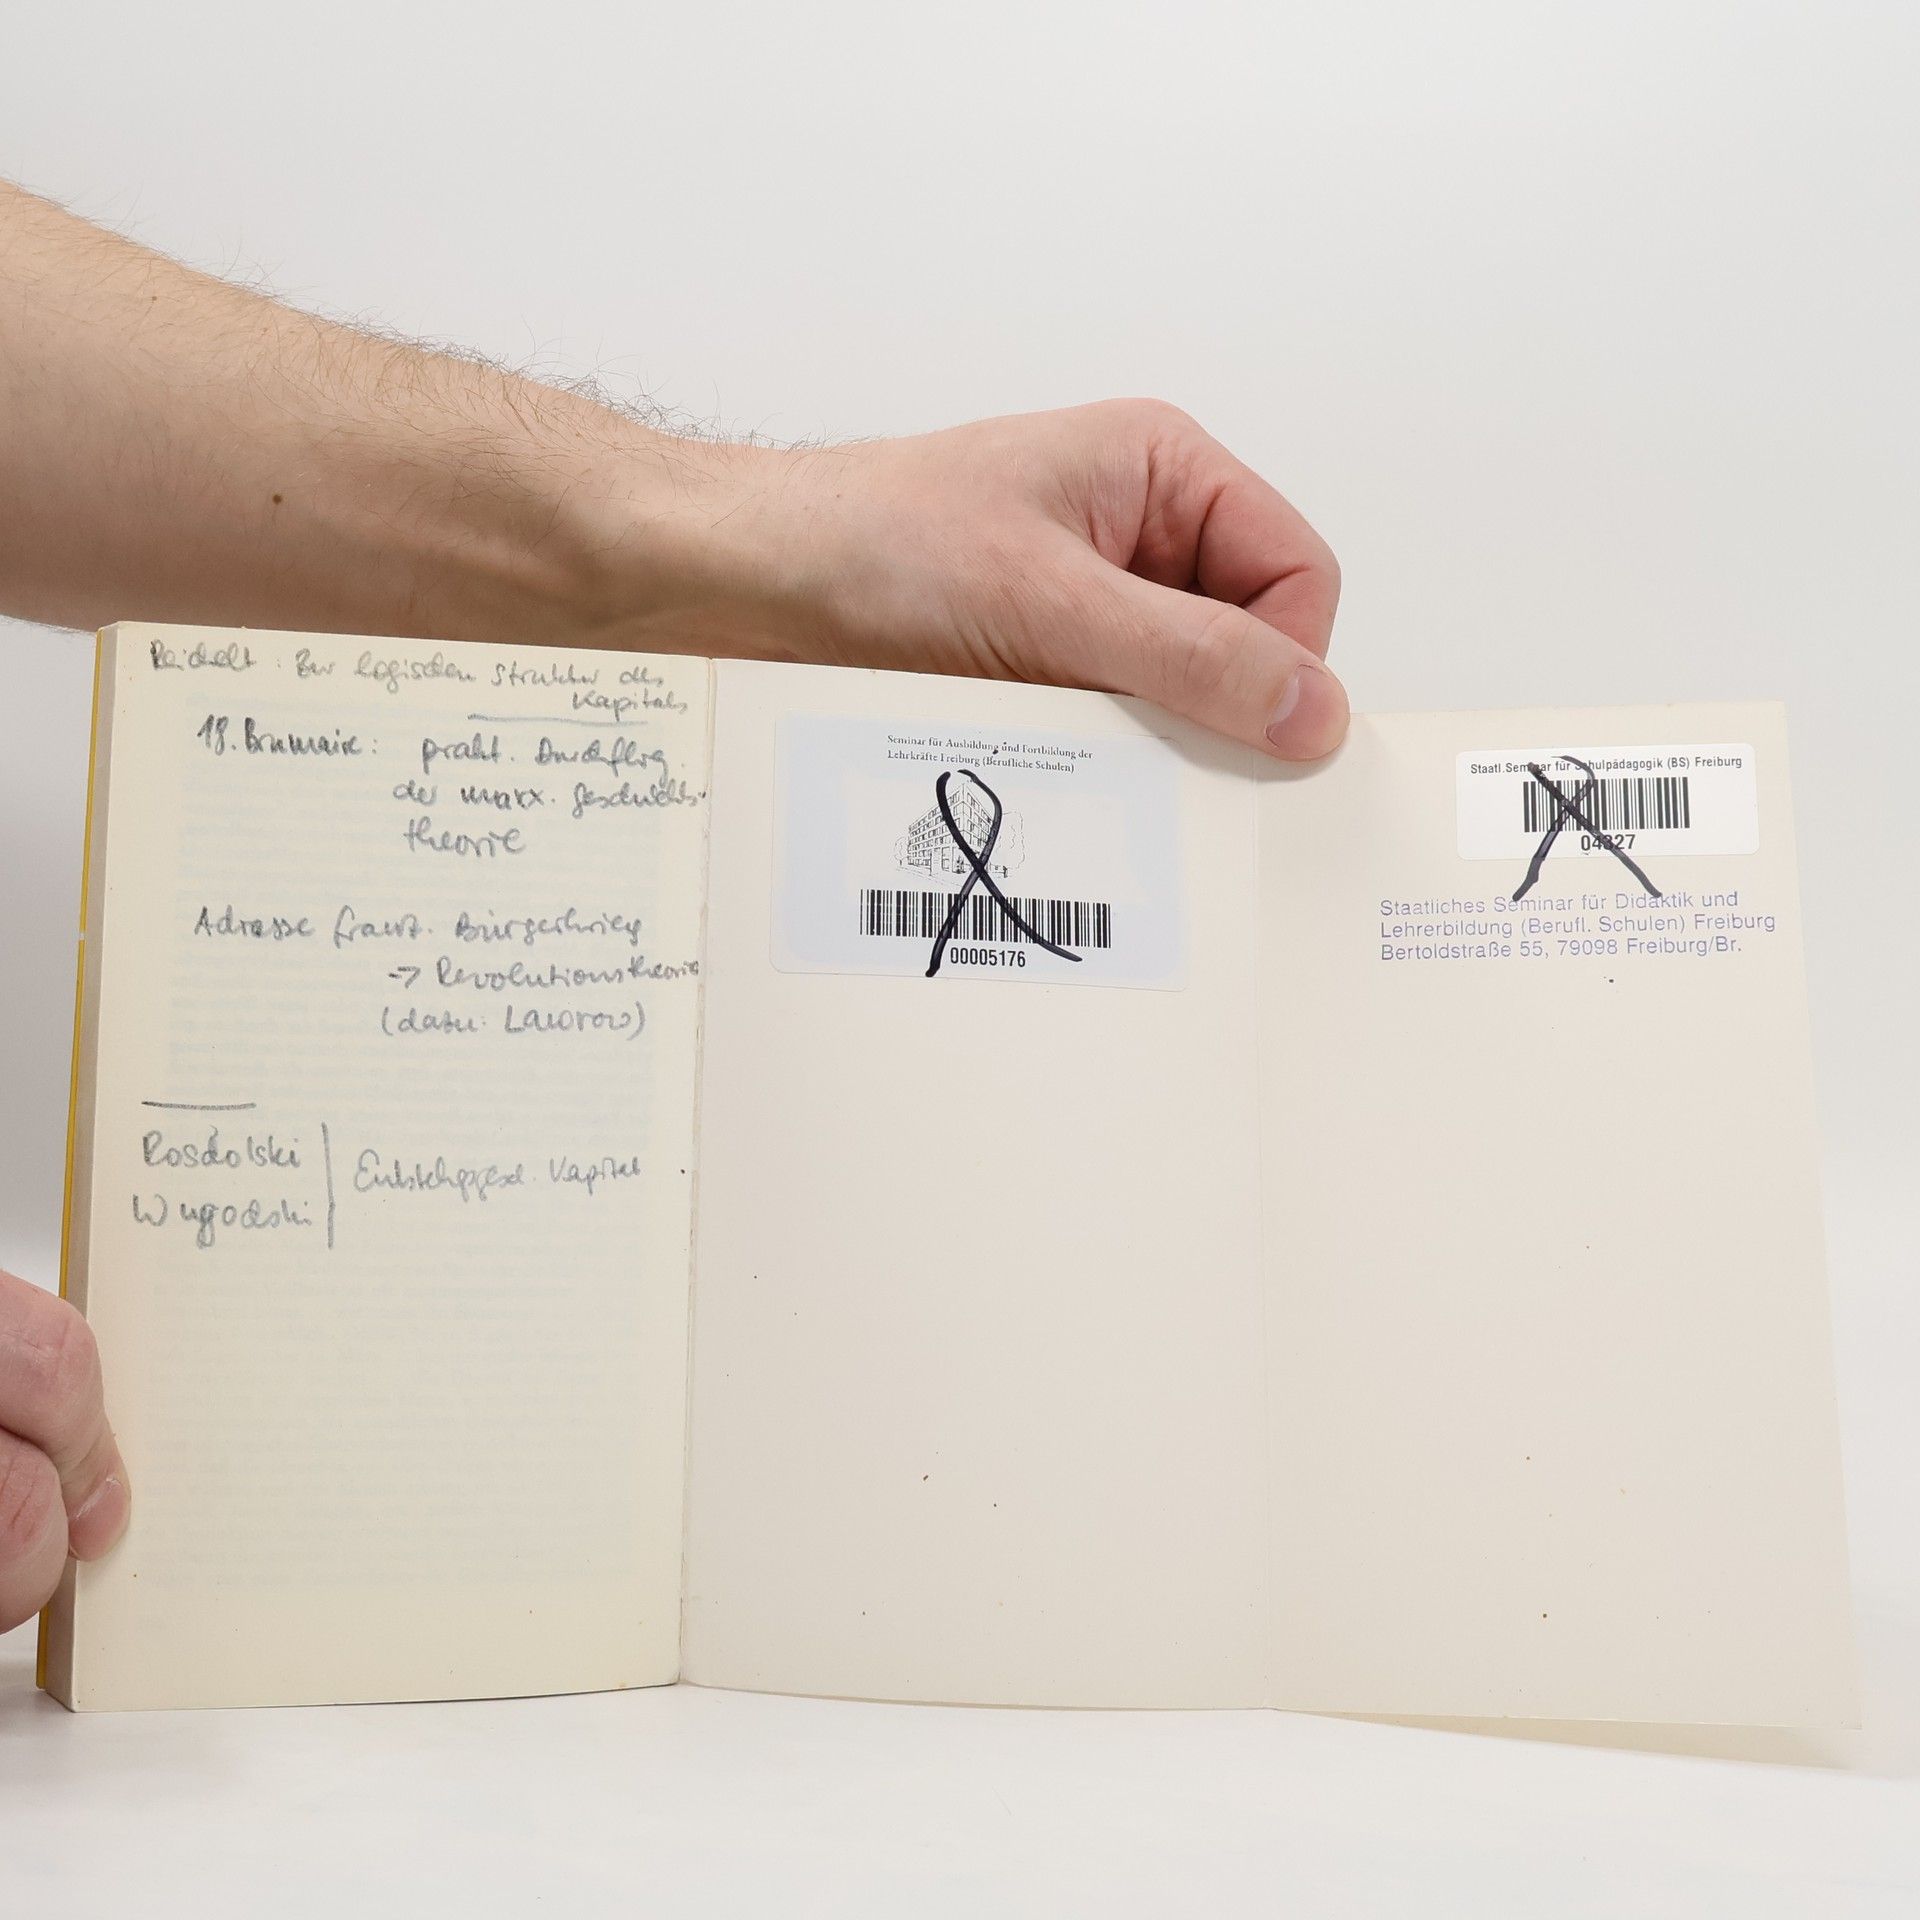 Reichelt: Zur logischen Struktur des
Kapitals
18. Brumaire: prakt. Durchflhrg.
der marx. Geschichts-
theorie
Adresse franz. Bürgerkrieg
-> Revolutionstheorie
(dazu: Lawrow)
Rosdolski
Wygodski
Entstehggesch. Kapital
Seminar für Ausbildung und Fortbildung der
Lehrkräfte Freiburg (Berufliche Schulen)
00005176
Staatl.Seminar für Schulpädagogik (BS) Freiburg
04327
Staatliches Seminar für Didaktik und
Lehrerbildung (Berufl. Schulen) Freiburg
Bertoldstraße 55, 79098 Freiburg/Br.